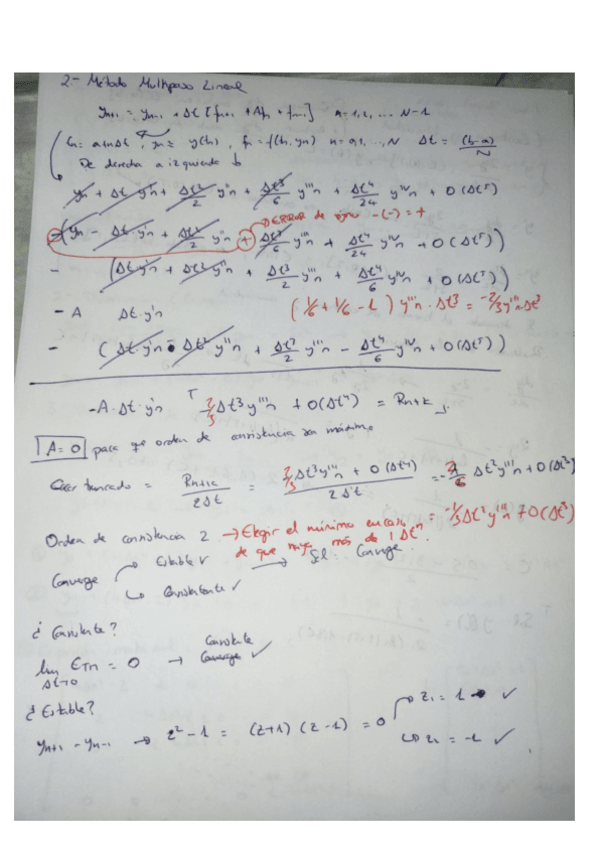 2- Método Multipaso Lineal
yn+1 = yn-1 + Δt [fn+1 + Afn + fn-1] n=1,2,... N-1
tn = a+nΔt, yn ≈ y(tn), fn = f(tn, yn) n=0,1,...,N Δt = (b-a)/N
De derecha a izquierda
yn + Δt y'n + Δt²/2 y''n + Δt³/6 y'''n + Δt⁴/24 yIVn + O(Δt⁵)
ERROR de signo -(-) = +
-(yn - Δt y'n + Δt²/2 y''n + Δt³/6 y'''n + Δt⁴/24 yIVn + O(Δt⁵))
- (Δt y'n + Δt² y''n + Δt³/2 y'''n + Δt⁴/6 yIVn + O(Δt⁵))
- A Δt·y'n (1/6 + 1/6 - 1) y'''n · Δt³ = -2/3 y'''n Δt³
- (Δt·y'n - Δt² y''n + Δt³/2 y'''n - Δt⁴/6 yIVn + O(Δt⁵))
-A·Δt·y'n - 2/3 Δt³ y'''n + O(Δt⁴) = Rn+k
A=0 para que orden de consistencia sea máximo
Error truncado = Rn+k/2Δt = 2/3 Δt³ y'''n + O(Δt⁴)/2Δt = - 2/6 Δt² y'''n + O(Δt³)
= -1/3 Δt² y'''n + O(Δt³)
Orden de consistencia 2 → Elegir el mínimo en caso
de que haya más de 1 Δtⁿ.
Converge Estable ✓ → Sí Converge
Consistente ✓
¿Consistente?
lim Δt→0 ETn = 0 → Consistente ✓
Converge
¿Estable?
yn+1 - yn-1 → z² - 1 = (z+1) (z-1) = 0 z1 = 1 → ✓
z2 = -1 ✓